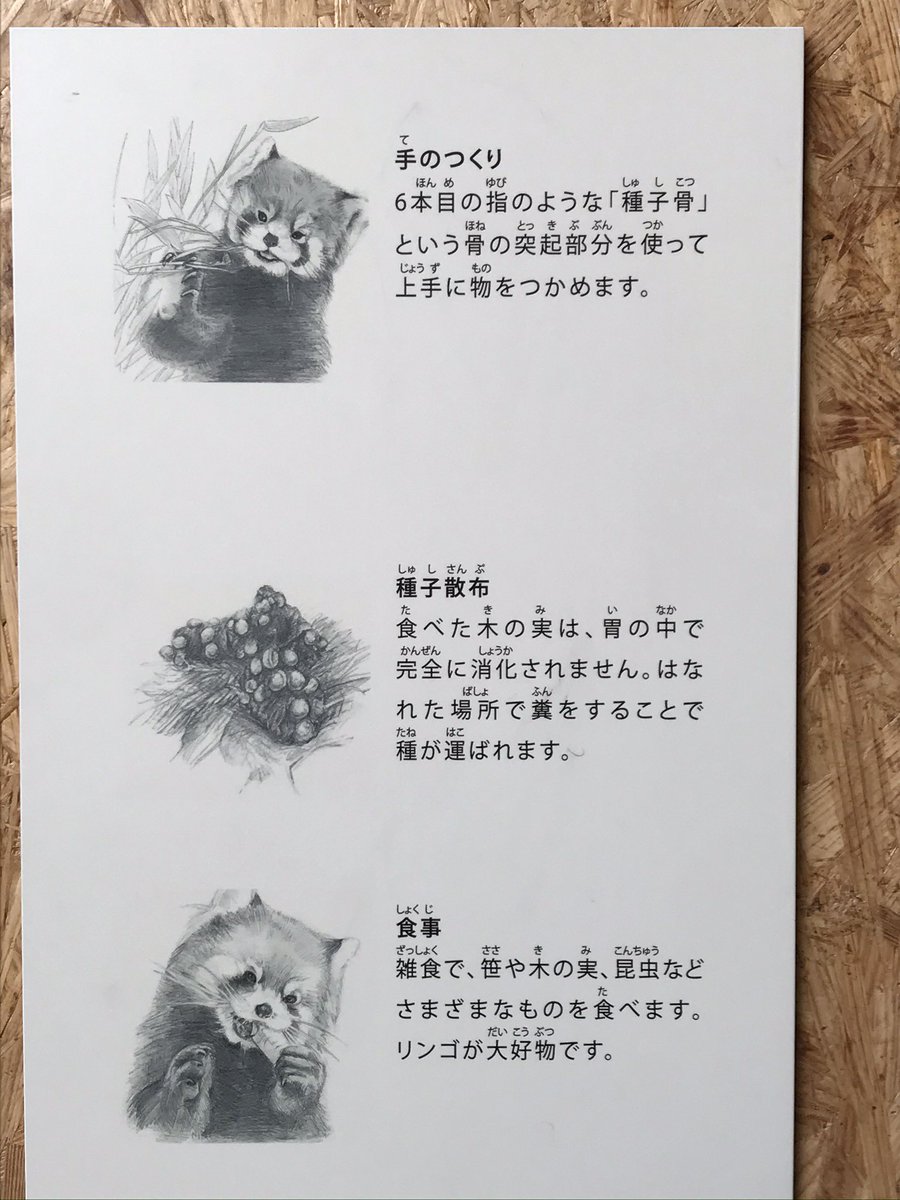 手のつくり
6本目の指のような「種子骨」
という骨の突起部分を使って
上手に物をつかめます。
種子散布
食べた木の実は、胃の中で
完全に消化されません。はな
れた場所で糞をすることで
種が運ばれます。
食事
雑食で、笹や木の実、昆虫など
さまざまなものを食べます。
リンゴが大好物です。